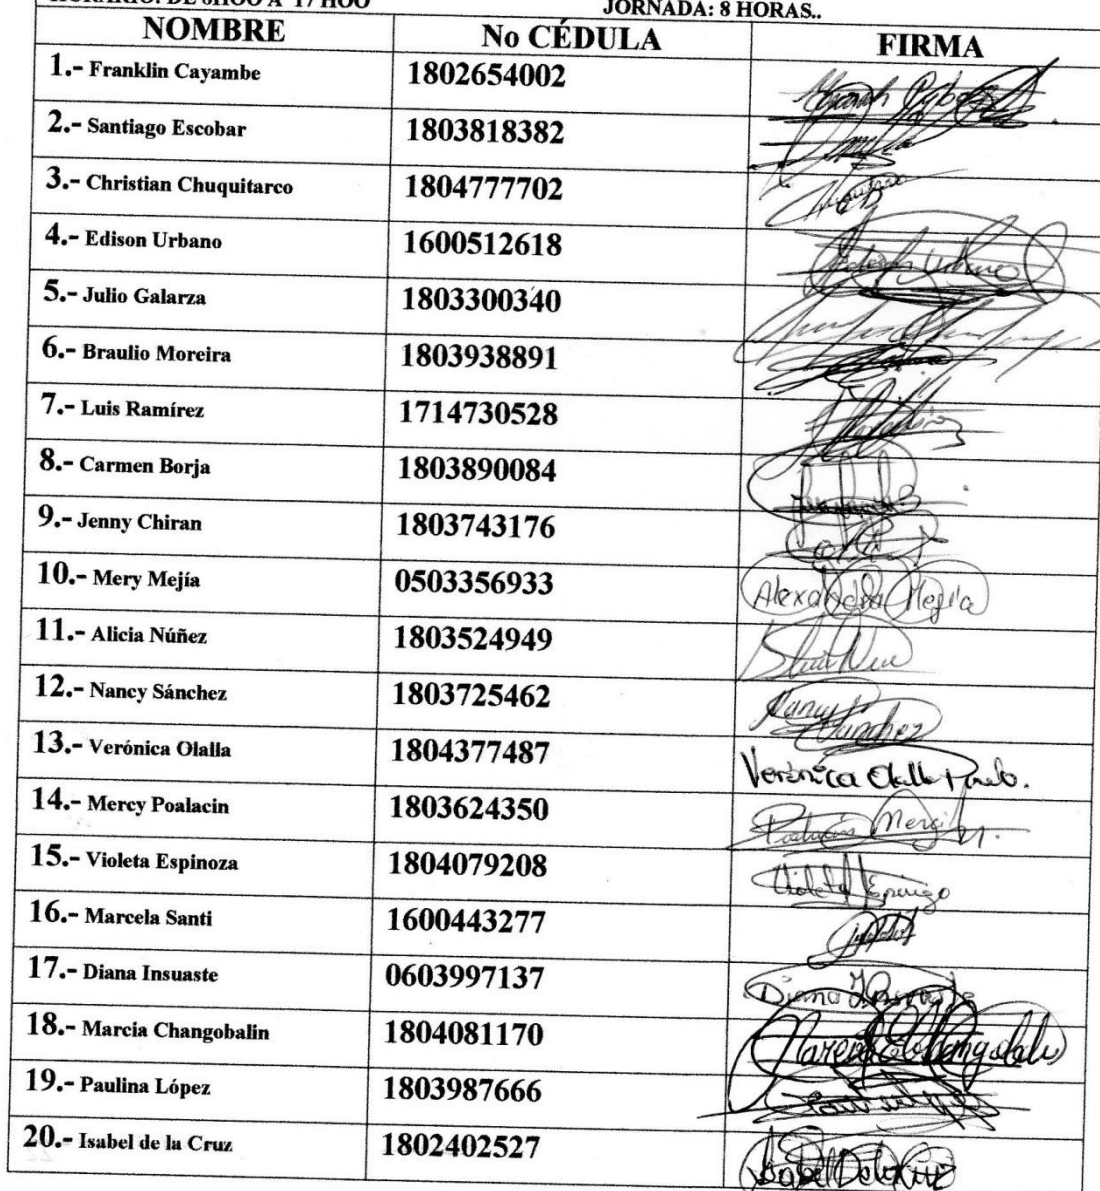 HORARIO: DE 8HOO A 17 HOO JORNADA: 8 HORAS..
NOMBRE No CÉDULA FIRMA
1.- Franklin Cayambe 1802654002
2.- Santiago Escobar 1803818382
3.- Christian Chuquitarco 1804777702
4.- Edison Urbano 1600512618
5.- Julio Galarza 1803300340
6.- Braulio Moreira 1803938891
7.- Luis Ramírez 1714730528
8.- Carmen Borja 1803890084
9.- Jenny Chiran 1803743176
10.- Mery Mejía 0503356933 Alexandra Mejía
11.- Alicia Núñez 1803524949
12.- Nancy Sánchez 1803725462 Nancy Sánchez
13.- Verónica Olalla 1804377487 Verónica Olalla
14.- Mercy Poalacin 1803624350
15.- Violeta Espinoza 1804079208 Violeta
16.- Marcela Santi 1600443277
17.- Diana Insuaste 0603997137 Diana Insuaste
18.- Marcia Changobalin 1804081170
19.- Paulina López 1803987666
20.- Isabel de la Cruz 1802402527 Isabel De la Cruz